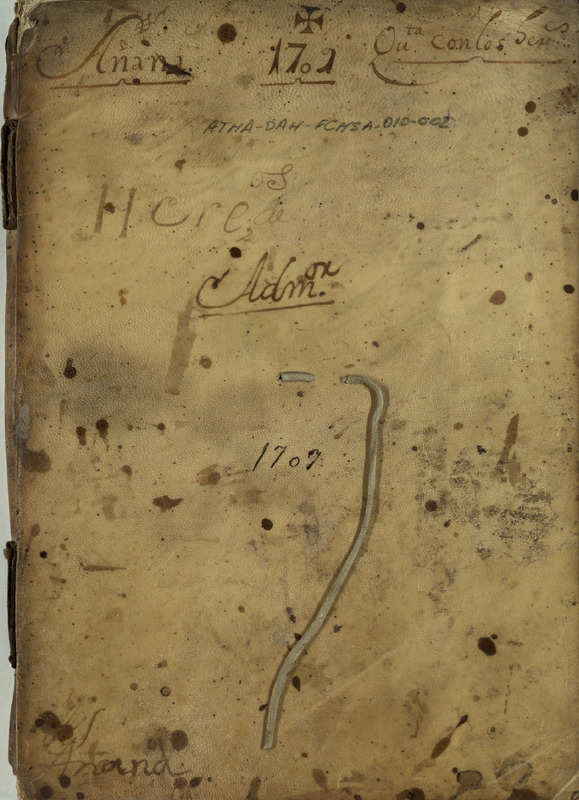 ✠
Anana 1709 Qu.ta con los Her.os
ATHA-DAH-FCHSA-010-002
Hereos de
Adm.on
1709
Añana